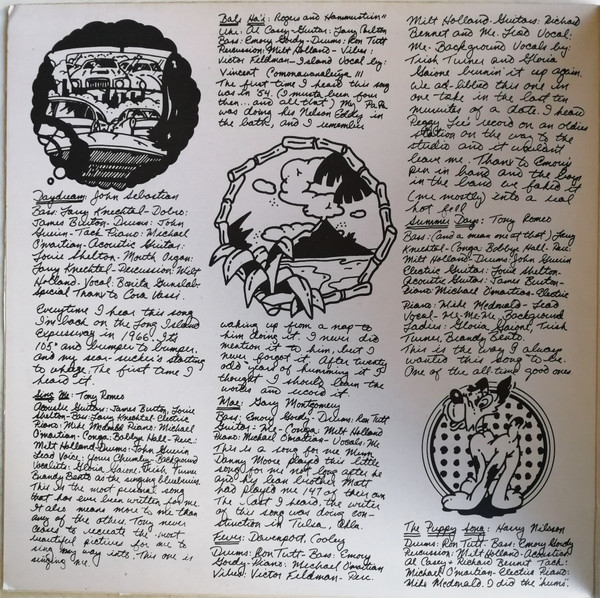 Daydream: John Sebastian
Bass: Larry Knechtal - Dobro:
James Burton - Drums: John
Guerin - Tack Piano: Michael
O'martian - Acoustic Guitar:
Louie Shelton - Mouth Organ:
Larry Knechtel - Percussion: Milt
Holland - Vocal: Bonita Gunslab-
Special Thanks to Cora Vassi.
Everytime I hear this song
I'm back on the Long Island
Expressway in 1966. Its
105° and bumper to bumper,
and my sear-sucker's starting
to wharpe. The first time I
heard it.
Sing Me: Tony Romeo
Acoustic Guitars: James Burton, Louie
Shelton - Bass: Larry Knechtel - Electric
Piano: Mike Mcdonald - Piano: Michael
O'martian - Conga: Bobbye Hall - Perc:
Milt Holland - Drums: John Guerin
Lead Voice: Louis Chumley - Background
Vocalists: Gloria Gaione, Trish Turner
Brandy Bento as the singing bluebirds.
This is the most personal song
that has ever been written, by me.
It also means more to me than
any of the others. Tony never
ceases to recreate the most
beautiful pictures for me to
sing my way into. This one is
singing me.
Bali Ha'i: Rogers and Hammerstein II
Uke: Al Casey - Guitar: Larry Carlton
Bass: Emory Gordy - Drums: Ron Tutt
Percussion: Milt Holland - Vibes:
Victor Feldman - Island Vocal by:
Vincent Comonawanaleigha III
The first time I heard this song
was in '54. (I musta been four
then... and all that) My Papa
was doing his Nelson Eddy in
the bath, and I remember
waking up from a nap to
him doing it. I never did
mention it to him, but I
never forgot it. After twenty
odd years of humming it I
thought I should learn the
words and record it.
Mae: Gary Montgomery
Bass: Emory Gordy - Drums: Ron Tutt
Guitar: Me - Conga: Milt Holland
Piano: Michael O'martian - Vocals: Me
This is a song for me Mum.
Danny Moore played this little
song for me not long after he
and his lean brother Matt
had played me 147 of their own
The last I heard, the writer
of this song was doing con-
struction in Tulsa, Okla.
Fever: Davenport, Cooley
Drums: Ron Tutt - Bass: Emory
Gordy - Piano: Michael O'martian
Vibes: Victor Feldman - Perc:
Milt Holland - Guitars: Richard
Bennet and Me. Lead Vocal:
Me - Background Vocals by:
Trish Turner and Gloria
Gaione burnin' it up again.
We ad-libbed this one in
one take in the last ten
minutes of a date. I heard
Peggy Lee's record on an oldies
station on the way to the
studio and it wouldn't
leave me. Thanx to Emory's
pen in hand and the boys
in the band we faked it
(me mostly) into a real
hot roll!
Summer Days: Tony Romeo
Bass: (and a mean one at that) Larry
Knechtel - Conga: Bobbye Hall - Perc:
Milt Holland - Drums: John Guerin
Electric Guitar: Louie Shelton -
Acoustic Guitar: James Burton -
Piano: Michael O'martian - Electric
Piano: Mike Mcdonald - Lead
Vocal - Me - Me - Me. Background
Ladies: Gloria Gaione, Trish
Turner, Brandy Bento.
This is the way I always
wanted this song to be.
One of the all time good ones
The Puppy Song: Harry Nilsson
Drums: Ron Tutt - Bass: Emory Gordy
Percussion: Milt Holland - Acoustics:
Al Casey & Richard Bennet Tack:
Michael O'martian - Electric Piano:
Mike Mcdonald. I did the 'hums'.